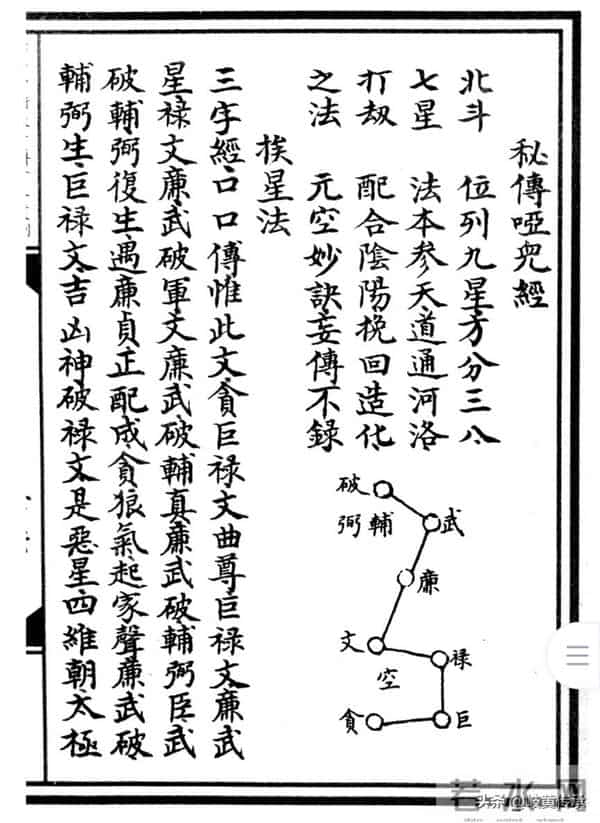 秘傳啞兒經
北斗 位列九星方分三八
七星 法本参天道通河洛
打劫 配合陰陽挽回造化
之法 元空妙訣妄傳不録
挨星法
三字經口口傳惟此文貪巨禄文曲尊巨禄文廉武
星禄文廉武破軍文廉武破輔真廉武破輔弼臣武
破輔弼復生遇廉貞正配成貪狼氣起家聲廉武破
輔弼生巨禄文吉凶神破禄文是惡星四維朝太極
破
弼 輔 武
廉
文 禄
空
貪 巨
若水网
头条@岐黄传承